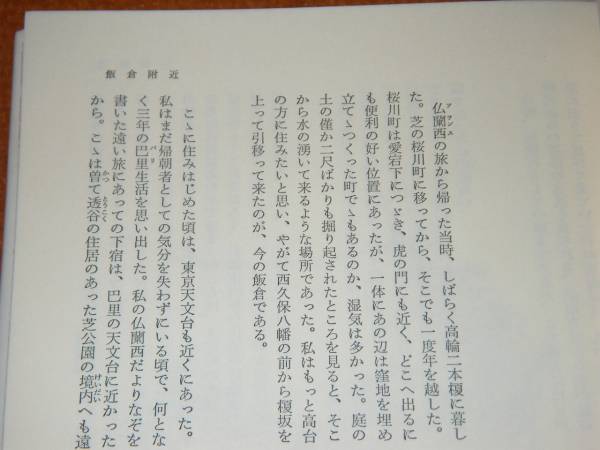 飯倉附近
仏蘭西の旅から帰った当時、しばらく高輪二本榎に暮し
た。芝の桜川町に移ってから、そこでも一度年を越した。
桜川町は愛宕下につゞき、虎の門にも近く、どこへ出るに
も便利の好い位置にあったが、一体にあの辺は窪地を埋め
立てゝつくった町でゝもあるのか、湿気は多かった。庭の
土の僅か二尺ばかりも掘り起されたところを見ると、そこ
から水の湧いて来るような場所であった。私はもっと高台
の方に住みたいと思い、やがて西久保八幡の前から榎坂を
上って引移って来たのが、今の飯倉である。
こゝに住みはじめた頃は、東京天文台も近くにあった。
私はまだ帰朝者としての気分を失わずにいる頃で、何とな
く三年の巴里生活を思い出した。私の仏蘭西だよりなぞを
書いた遠い旅にあっての下宿は、巴里の天文台に近かった
から。こゝは曽て透谷の住居のあった芝公園の境内へも遠